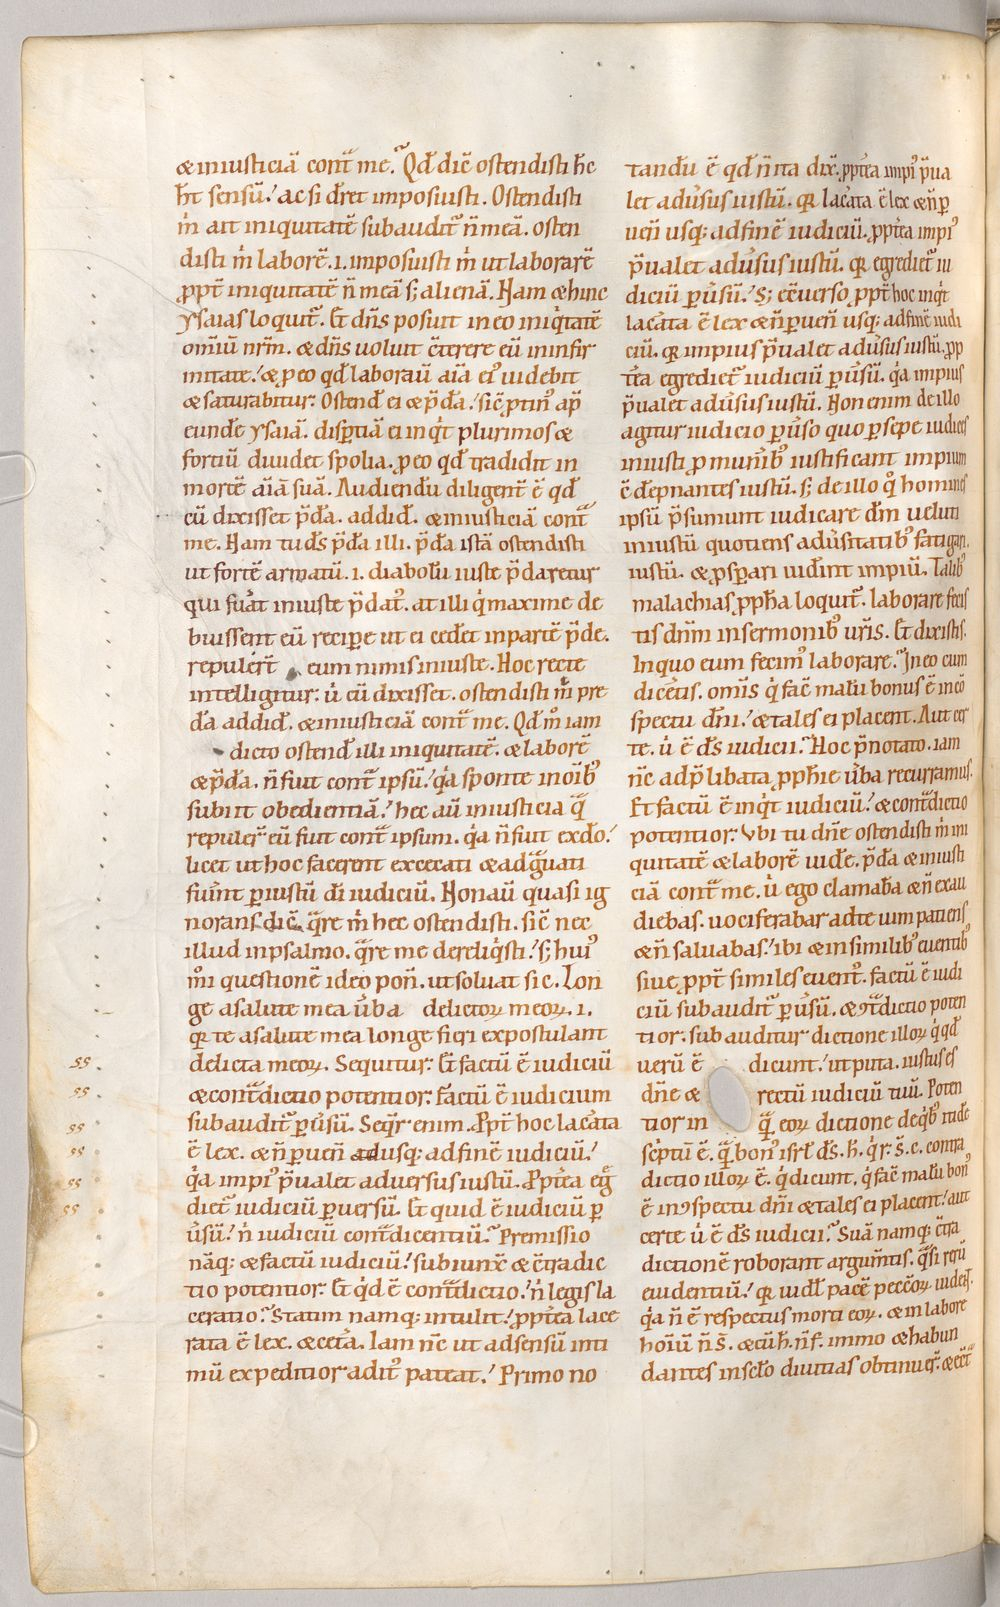 & iniusticiā cont̄ me. Qd̄ dic̄ ostendisti hc̄
ht̄ sensū. ac si dr̄et imposuisti. Ostendisti
m̄ ait iniquitatē subaudit̄ n̄ meā. osten
disti m̄ laborē. i. imposuisti m̄ ut laborarē
ꝓpt̄ iniquitatē n̄ meā s; alienā. Nam & hinc
ysaias loquit̄. Et dn̄s posuit in eo iniq̇tatē
omīū nr̄m. & dn̄s uoluit c̄terere eū in infir
mitate. & ꝓ eo qd̄ laborau̅ aīa eiꝰ uidebit
& saturabitur. Ostend̄ ei & p̄da. sic̄ ꝑtin̄ ap̄
eundē ysaiā. disꝑtiā ei inq̇t plurimos &
fortiū diuidet spolia. ꝓ eo qd̄ tradidit in
mortē aīā suā. Audiendū diligent̄ ē qd̄
cū dixisset p̄da. addid̄. & iniusticiā cont̄
me. Nam tu ds̄ p̄da illi. p̄da istā ostendisti
ut fortē armatū. i. diabolū iuste p̄daretur
qui fuāt iniuste p̄datꝰ. at illi q̇ maxime de
buissent eū reciꝑe ut ei cedet in partē p̄de.
repulēr̄t eum nimis iniuste. Hoc recte
intelligitur. ů cū dixisset. ostendisti m̄ pre
da addid̄. & iniusticiā cont̄ me. Qd̄mꝰ iam
dicto ostend̄ illi iniquitatē. & laborē
& p̄da. n̄ fuit cont̄ ipsū. q̇a sponte in oīb᷒
subiit obedientiā. hec aū iniusticia q̄
repuler̄ eū fuit cont̄ ipsum. q̇a n̄ fuit ex do.
licet ut hoc facerent excecati & adg̃uati
fuūnt ꝑ iustū di iudiciū. Non aū quasi ig
norans dic̄. q̃re m̄ hec ostendisti. sic̄ nec
illud in psalmo. q̃re me dereliq̇sti. s; huiꝰ
mōi questionē ideo pon̄. ut soluat sic. Lon
ge a salute mea ůba delictoꝝ meoꝝ. i.
qꝛ te a salute mea longe fieri expostulant
delicta meoꝝ. Sequitur. Et factū ē iudiciū
& contdictio potentior. factū ē iudicium
subaudit̄ ꝑůsū. Seqr̄ enim. Ꝓpt̄ hoc laceāta
ē lex. & n̄ ꝑuen̄ adusq; ad finē iudiciū.
q̇a impiꝰ p̄ualet aduersus iustū. Ꝓpt̄ea eg̃
diet̄ iudiciū ꝑuersū. Et quid ē iudiciū ꝑ
ůsū. n̄ iudiciū contdicentiū. Premissio
nāq; & factū iudiciū. subiunx̄ & c̄tradic
tio potentior. Et q̇d ē contdictio. n̄ legis la
ceratio. Statim namq; intulit. ꝓpt̄ea lace
rata ē lex. & ceta. Iam nc̄ ut ad sensū inti
mū expeditior aditꝰ pateat. Primo no
tandū ē qd̄ n̄ ita dix̄. ꝓpt̄ea impiꝰ p̄ua
let adůsus iustū. qꝛ laceāta ē lex & n̄ ꝑ
uen̄ usq; ad finē iudiciū. ꝓpt̄ea impiꝰ
p̄ualet adůsus iustū. qꝛ egrediet̄ iu
diciū ꝑůsū. S; ec̄uerso ꝓpt̄ hoc inq̇t
laceāta ē lex & n̄ ꝑuen̄ usq; ad finē iudi
ciū. qꝛ impius p̄ualet adůsus iustū. ꝓp
t̄ea egrediet̄ iudiciū ꝑůsū. q̇a impius
p̄ualet adůsus iustū. Non enim de illo
agitur iudicio ꝑůso quo ꝑsepe iudices
iniusti ꝓ munīb᷒ iustificant impium
c̄depnantes iustū. s; de illo q̊ homines
ipsū p̄sumunt iudicare dm̄ uelut
iniustū quotiens adůsitatib᷒ fatigari
iustū. & ꝓsꝑari uid̄int impiū. Talib᷒
malachias ꝓpha loquit̄. laborare fecis
tis dnm̄ in sermonib᷒ uris. Et dixistis.
In quo eum fecimꝰ laborare. In eo cum
dicetis. omīs q̇ fac̄ malū bonus ē in co
spectu dni. & tales ei placent. Aut cer
te. ů ē ds̄ iudicii. Hoc p̄notato. iam
nc̄ ad p̄libata ꝓphie ůba recurramus.
Et factū ē inq̇t iudiciū. & contdictio
potentior. Vbi tu dn̄e ostendisti m̄ ini
quitatē & laborē uide. p̄da & iniusti
ciā cont̄ me. ů ego clamaba & n̄ exau
diebas. uociferabar ad te uim patiens
& n̄ saluabas. ibi & in similib᷒ euentib᷒
siue ꝓpt̄ similes euentꝰ. factū ē iudi
ciū subaudit̄ ꝑůsū. & ꝯtdictio poten
tior. subauditur dictione illoꝝ q̇ qd̄
uerū ē dicunt. ut puta. iustus es
dn̄e & rectū iudiciū tuū. Poten
tior in q̃ eoꝝ dictione de q̇b᷒ itide
sc̄ptū ē. q̄ bonꝰ isrl̄ ds̄. h. q̇r. s̄. c. contra
dictio illoꝝ ē. q̇ dicunt. q̇ fac̄ malū bonꝰ
ē in ꝯspectu dni & tales ei placent. aut
certe ů ē ds̄ iudicii. Suā namq; c̄tra
dictionē roborant argum̄tis. q̃si rerū
euidentiū. qꝛ uidl̄ pacē pecc̄oꝝ uidens.
q̇a n̄ ē respectus morti eoꝝ. & in labore
hoīū n̄ s̄. & cū h. n̄ f. immo & habun
dantes in sclo diuitias obtinuer̄. & ect̄
ss
ss
ss
ss
ss
ss